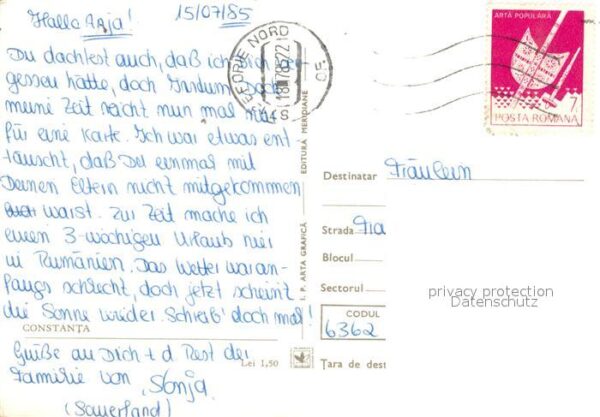 Hallo Anja! 15/07/85
Du dachtest auch, daß ich Dich ver-
gessen hätte, doch Irrtum. Doch
meine Zeit reicht nun mal nur
für eine Karte. Ich war etwas ent-
täuscht, daß Du einmal mit
Deinen Eltern nicht mitgekommen
warst. Zur Zeit mache ich
einen 3-wöchigen Urlaub hier
in Rumänien. Das Wetter war an-
fangs schlecht, doch jetzt scheint
die Sonne wieder. Schreib' doch mal!
CONSTANȚA
Grüße an Dich + d Rest der
Familie von Sonja
(Sauerland)
Lei 1,50
EFORIE NORD
I. P. ARTA GRAFICĂ
EDITURA MERIDIANE
ARTĂ POPULARĂ
7
POSTA ROMANA
Destinatar Fräulein
Strada
Blocul
Sectorul
CODUL
6362
Țara de dest
privacy protection
Datenschutz